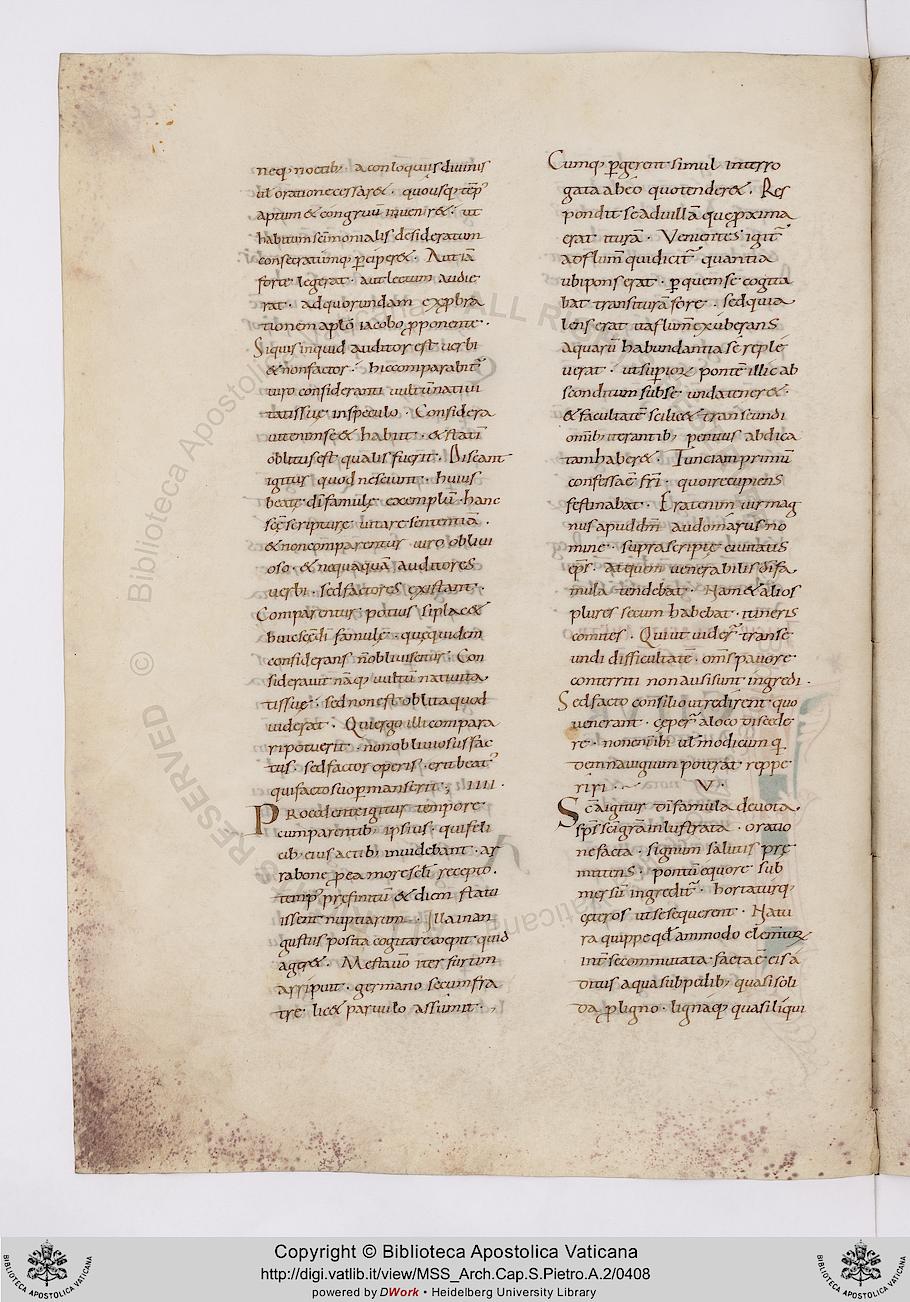 neq; noctib; aconloquiis diuinis
ul oratione cessar&. quousq; tēp᾽
aptum & congruū inuenir&. ut
habitum scīmonialis desideratum
consecratiunq; perciper&. Aut iā
forte legerat. aut lectum audie
rat. ad quorundam exprbra
tionem aplō iacobo proponente.
Siquis inquid auditor est uerbi
& non factor. hic comparabit᾽
uiro consideranti uultū natiui
tatis suę in speculo. Considera
uit enim se & habiit. & statī
oblitus est qualis fuerit. Discant
igitur quod nesciunt. huius
beatę dī famulę exemplū. hanc
scę scripturę uitare sententiā.
& non comparentur uiro obliui
oso. & nequaquā auditores
uerbi. sed factores existant.
Comparentur potius si plac&
huic scē dī famulę. quę quidem
considerans n̄ obliuiscitur. Con
siderauit nāq; uultū natiuita
tis suę. sed non est oblita quod
uiderat. Qui ergo illi compara
ri potuerit. non obliuiosus fac
tus. sed factor operis. erit beat᾽
qui facto suo permanserit; IIII.
Procedente igitur tempore
cum parentib; ipsius. qui feli
cib; eius actib; inuidebant. ar
rabone pro ea more sclī recepto.
temp᾽ pręfinitū & diem statu
issent nuptiarum. Illa in an
gustiis posita cogitare coepit quid
ager&. Mestauō iter furtim
arripuit. germano secum fra
tre. lic& paruulo assumit.
Cumq; pergerent simul interro
gata ab eo quo tender&. Res
pondit se ad uillā quę proxima
erat iturā. Venientes igit᾽
ad flum̄ qui dicit᾽ quantia
ubi pons erat. per quem se cogita
bat transiturā fore. sed quia
lens erat ita flum̄ exuberans
aquarū habundantia se reple
uerat. ut superiorē pontē illic ab
sconditum sub se unda tener&.
& facultatē scilic& transeundi
omīb; iterantib; penitus abdica
tam haber&. Iunciam primū
confessa ē frī. quo ire cupiens
festinabat. Erat enim uir mag
nus apud dm̄ audomarus no
mine. suprascriptę ciuitatis
ep̄s. ad quem uenerabilis dī fa
mula tendebat. Nam & alios
plures secum habebat. itineris
comites. Qui ut uider᾽ transe
undi difficultatē. om̄s pauore
conterriti non ausi sunt ingredi.
Sed facto consilio ut redirent quo
uenerant. cęper᾽ a loco discede
re. non enī ibi ul modicum q
dem nauigium poterat reppe
riri. V.
Scā igitur dī famula deuota.
sp̄s scī grā inlustrata. oratio
ne facta. signum salutis prę
mittens. pontū equore sub
mersū ingredit᾽. hortaturq;
cęteros ut se sequerent᾽. Natu
ra quippe qđ ammodo elemtūr
int̄ se commutata. facta ē eis ā
ditus aqua sub pedib; quasi soli
da pro ligno. lignaq; quasi liqui
Copyright © Biblioteca Apostolica Vaticana
http://digi.vatlib.it/view/MSS_Arch.Cap.S.Pietro.A.2/0408
powered by DWork • Heidelberg University Library